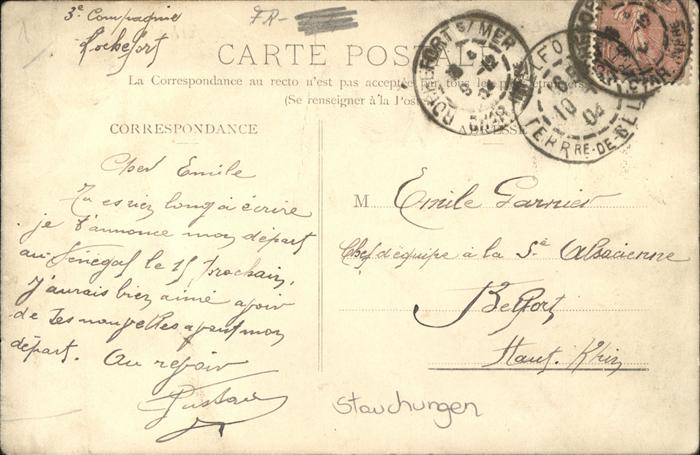 3e Compagnie
Rochefort
FR-
CARTE POSTALE
La Correspondance au recto n'est pas acceptée par tous les pays étrangers
(Se renseigner à la Poste)
ROCHEFORT S/ MER
BELFORT
10
04
TERRRE-DE-BELF
CORRESPONDANCE
ADRESSE
Cher Emile
Tu es bien long à écrire
je t'annonce mon départ
au Sénégal le 15 prochain,
J'aurais bien aimé avoir
de tes nouvelles avant mon
départ.
Au revoir
Gustave
M Emile Garnier
Chef d'équipe à la Sté Alsacienne
Belfort
Haut-Rhin
Stauchungen